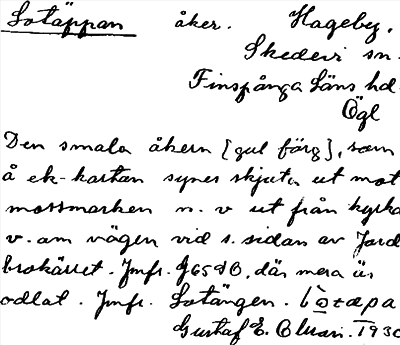 Sotäppan åker. Hageby,
Skedevi sn.
Finspånga Läns hd.
Ögl
Den smala åkern [gul färg], som
å ek-kartan synes skjuta ut mot
mossmarken n. v ut från kyrka
v. om vägen vid s. sidan av Jord
brokärret. Jmfr. J65db, där mera är
odlat. Jmfr. Sotängen.
Gustaf E. 1930